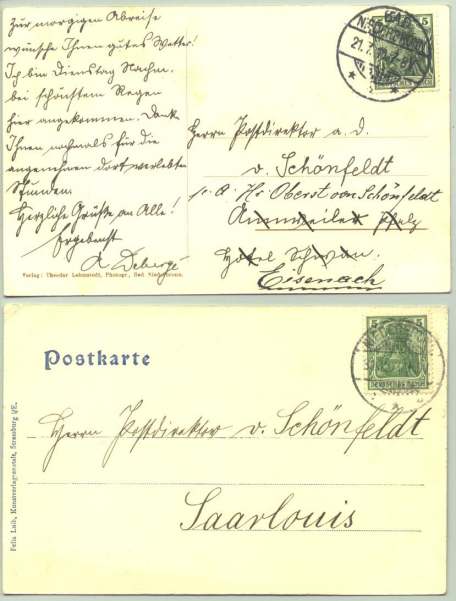 Zur morgigen Abreise
wünsche Ihnen gutes Wetter!
Ich bin Dienstag Nachm.
bei schönstem Regen
hier angekommen. Danke
Ihnen nochmals für die
angenehmen dort verlebten
Stunden.
Herzliche Grüße an Alle!
Ergebenst
A. Debergé
Verlag: Theodor Lehnstedt, Photogr., Bad Niederbronn.
BAD
NIEDERBRONN
21.7.
5
Herrn Postdirektor a. D.
v. Schönfeldt
p. A. Hr Oberst von Schönfeldt
Annweiler Pfalz
Hotel Schwan.
Eisenach
Postkarte
5
5
DEUTSCHES REICH
Herrn Postdirektor v. Schönfeldt
Saarlouis
Felix Luib, Kunstverlagsanstalt, Strassburg i/E.